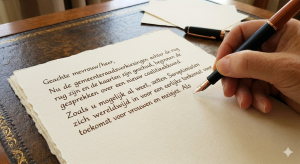 Geachte mevrouw/heer,
Nu de gemeenteraadsverkiezingen achter de rug
zijn en de kaarten zijn geschud, beginnen de
gesprekken over een nieuw coalitieakkoord.
Zoals u mogelijk al weet, zetten Soroptimisten
zich wereldwijd in voor een eerlijke toekomst
toekomst voor vrouwen en meisjes. Als